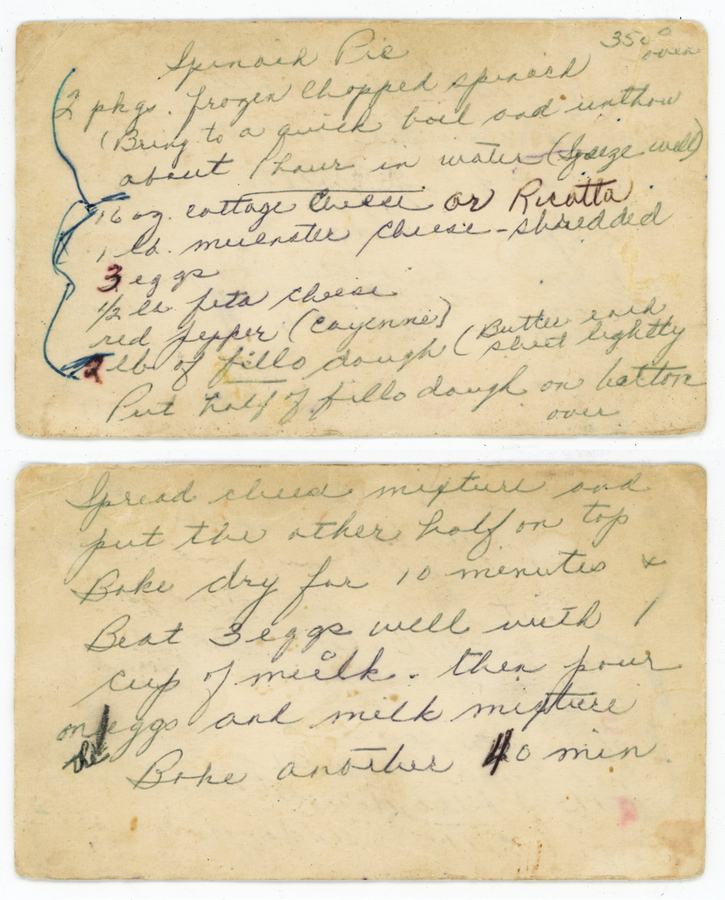 Spinach Pie
350° oven
2 pkgs. frozen Chopped spinach
(Bring to a quick boil and unthow
about 1 hour in water (Sqeeze well)
16 oz. cottage Cheese or Ricotta
1 lb. muenster cheese - shredded
3 eggs
1/2 lb feta cheese
red pepper (Cayenne)
2 lb of fillo dough (Butter each sheet lightly
Put half of fillo dough on bottom
over
Spread cheese mixture and
put the other half on top
Bake dry for 10 minutes x
Beat 3 eggs well with 1
cup of milk. then pour
on the eggs and milk mixture
Bake another 40 min